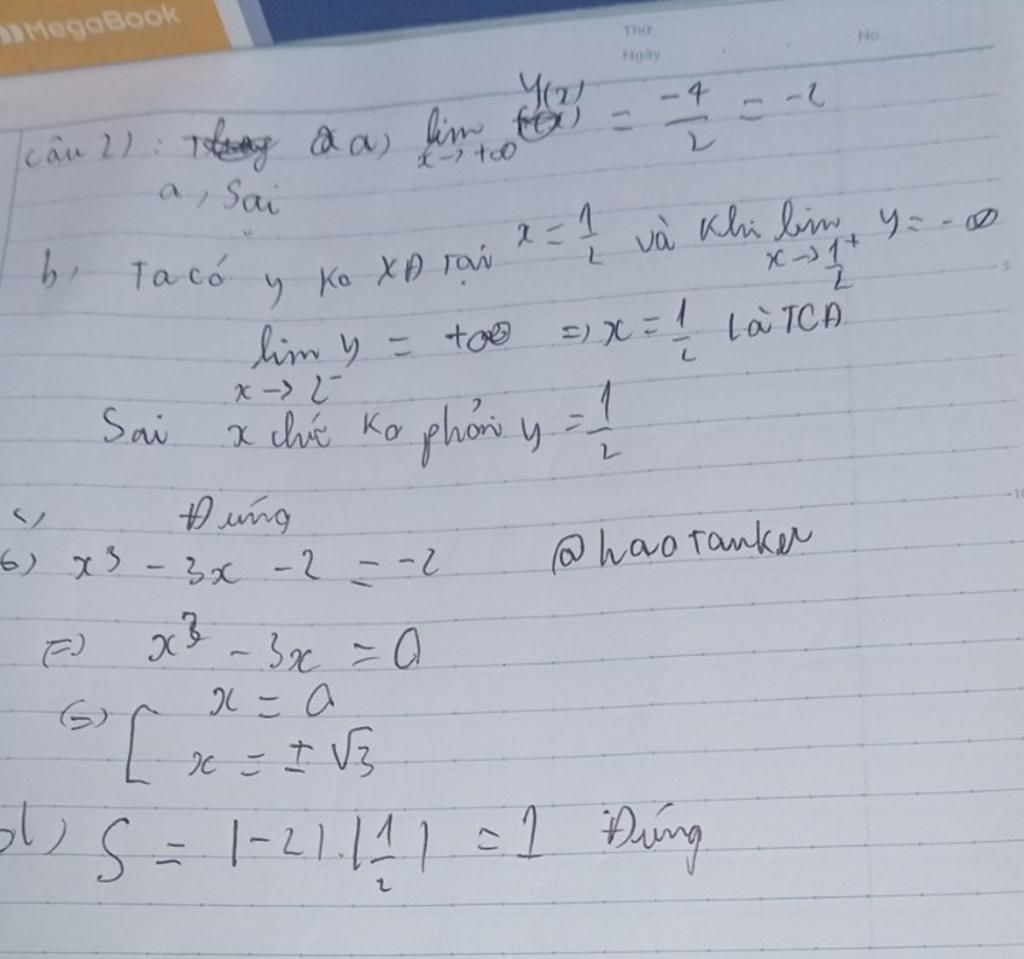 MegaBook
Thứ
Ngày
No.
Câu 2): a) lim x→+∞ y(x) = -4/2 = -2
a, Sai
b, Ta có y ko XĐ tại x = 1/2 và khi lim x→1/2⁺ y = -∞
lim x→2⁻ y = +∞ => x = 1/2 là TCĐ
Sai x chứ ko phải y = 1/2
c, Đúng
6) x³ - 3x - 2 = -2 @haotanker
=> x³ - 3x = 0
(=) [ x = 0
x = ±√3
d) S = |-2|.|1/2| = 1 Đúng